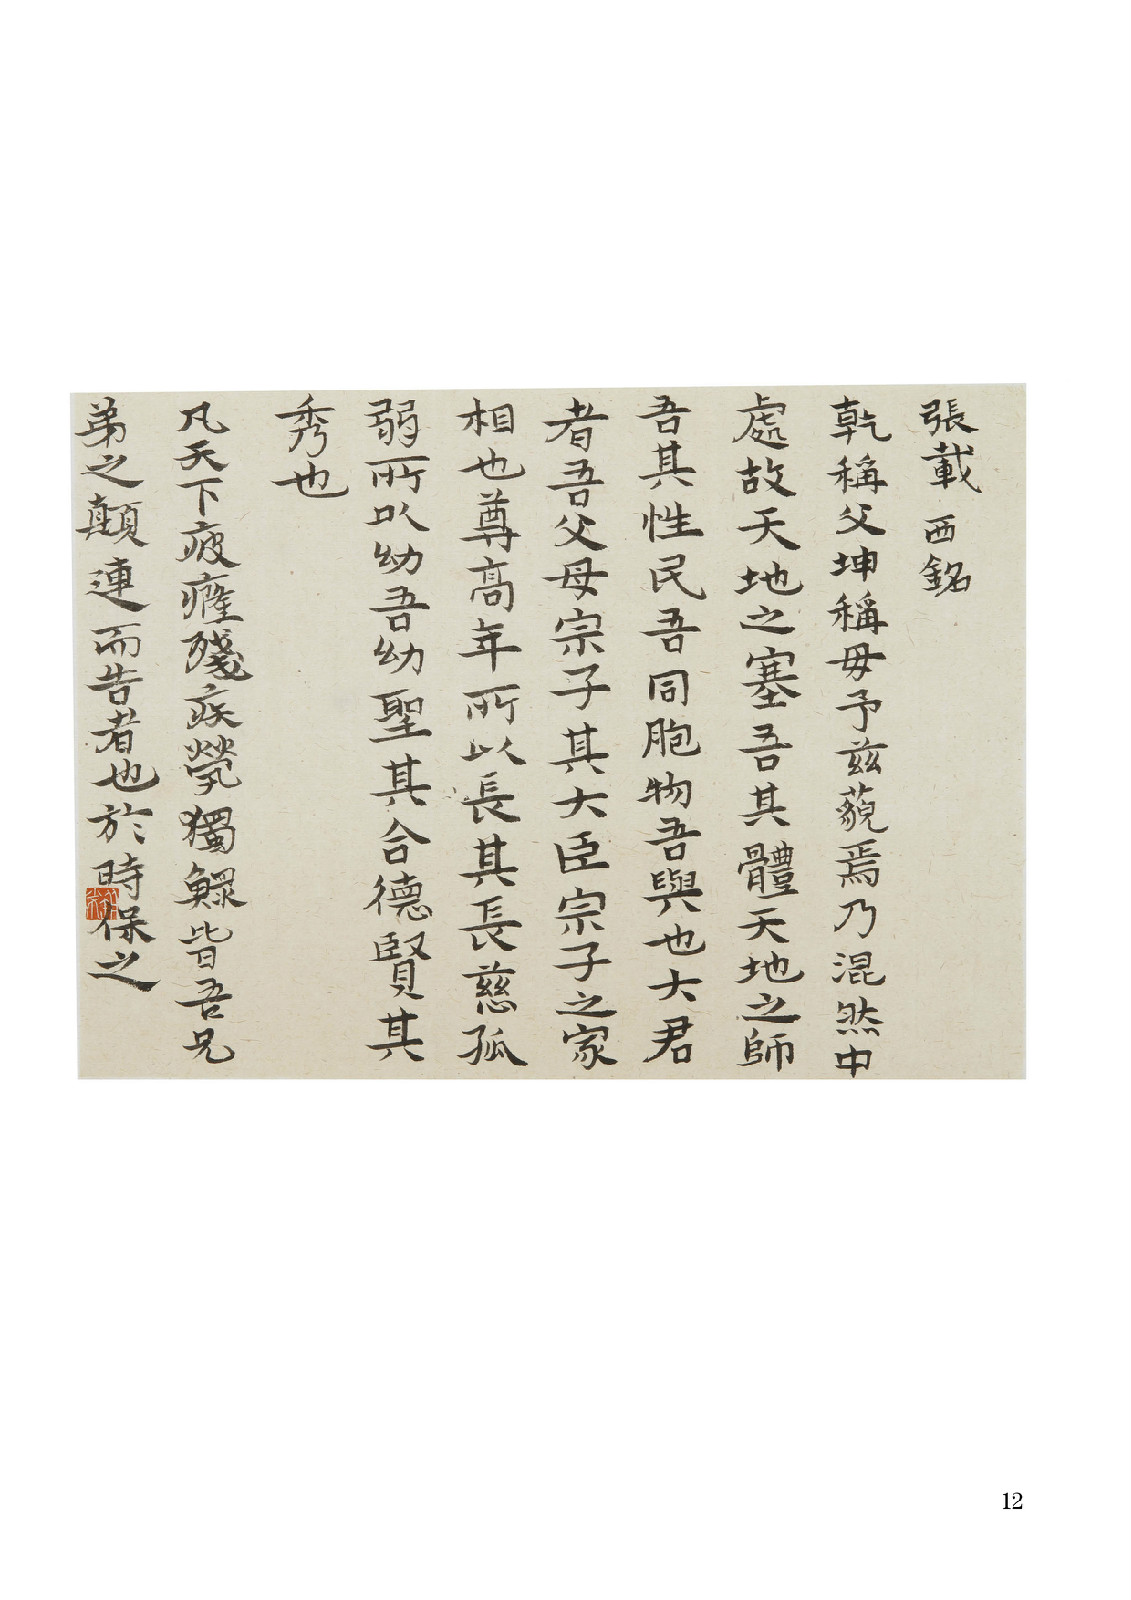 張載 西銘
乾稱父坤稱母予茲藐焉乃混然中
處故天地之塞吾其體天地之師
吾其性民吾同胞物吾與也大君
者吾父母宗子其大臣宗子之家
相也尊高年所以長其長慈孤
弱所以幼吾幼聖其合德賢其
秀也
凡天下疲癃殘疾煢獨鰥皆吾兄
弟之顛連而告者也於時保之
12